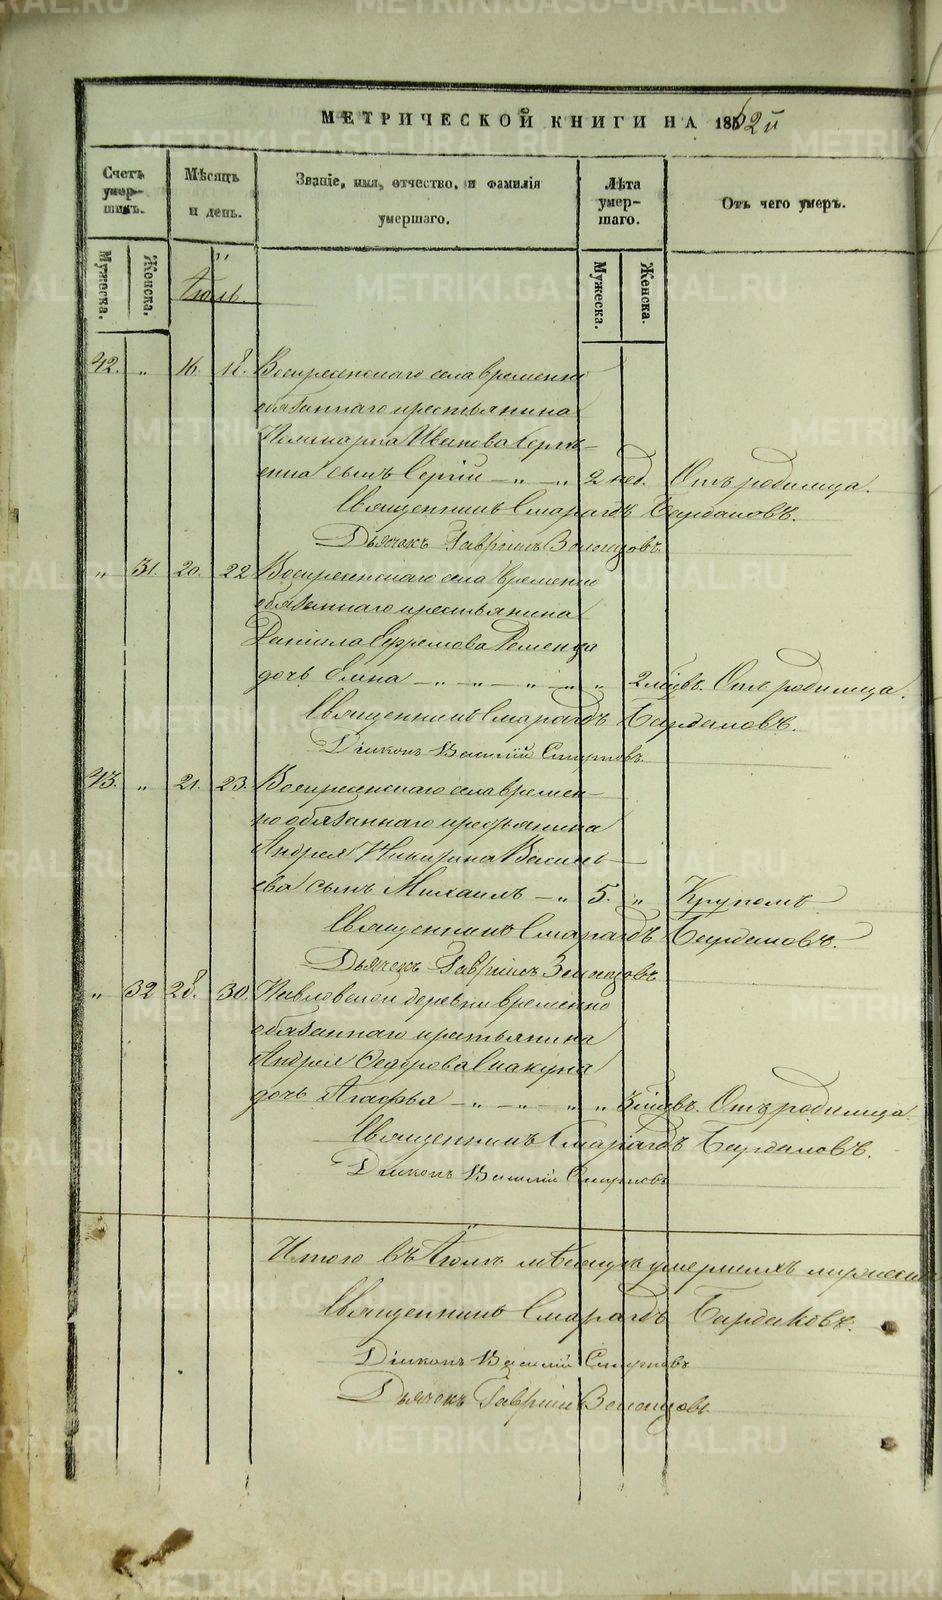 METRIKI.GASO-URAL.RU
МЕТРИЧЕСКОЙ КНИГИ НА 1862й
Счетъ умер-шихъ. Мѣсяцъ и день. Званіе, имя, отчество, и фамилія умершаго. Лѣта умер-шаго. Отъ чего умеръ.
Мужеска. Женска. Мужеска. Женска.
Іюль.
42. „ 16. 18. Воскресенскаго села временно
обязаннаго крестьянина
Ивanова
сынъ Сергій — „ — „ 2 нед. Отъ родимца.
Священникъ Смарагдъ Бардаковъ.
Дьячокъ Гавріилъ
„ 31. 20. 22 Воскресенскаго села временно
обязаннаго крестьянина
Даніила Ефремова
дочь — „ — „ — „ — „ „ 2 мѣсв. Отъ родимца.
Священникъ Смарагдъ Бардаковъ.
Діаконъ Василій Смирновъ.
43. „ 21. 23. Воскресенскаго села времен-
но обязаннаго крестьянина
Андрея Василь-
ева сынъ Михаилъ — „ 5. „ Крупомъ
Священникъ Смарагдъ Бардаковъ.
Дьячокъ Гавріилъ
„ 32 28. 30. Павловской деревни временно
обязаннаго крестьянина
Андрея Федорова
дочь Агафья — „ — „ — „ „ 3 мѣсв. Отъ родимца
Священникъ Смарагдъ Бардаковъ.
Діаконъ Василій Смирновъ
Итого въ Іюлѣ мѣсяцѣ умершихъ мужеска
Священникъ Смарагдъ Бардаковъ.
Діаконъ Василій Смирновъ
Дьячокъ Гавріилъ